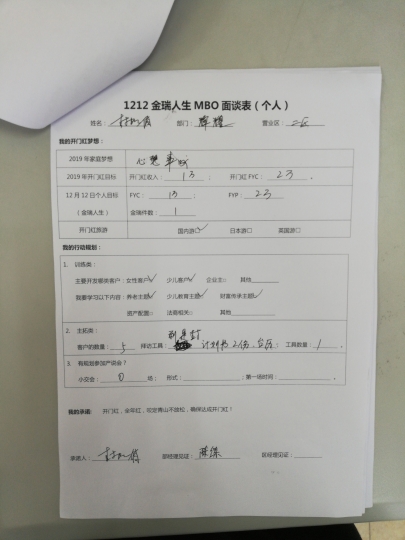 1212 金瑞人生 MBO 面谈表（个人）
姓名： 部门：辉耀 营业区：二区
我的开门红梦想：
2019 年家庭梦想 心想事成
2019 年开门红目标 开门红收入：13 开门红 FYC：23 。
12 月 12 日个人目标 FYC：13 FYP：23
（金瑞人生） 金瑞件数：1
开门红旅游 国内游○✓ 日本游○ 英国游○
我的行动规划：
1. 训练类：
主要开发哪类客户：女性客户✓ 少儿客户✓ 企业主○ 其他
我要学习以下内容：养老主题✓ 少儿教育主题✓ 财富传承主题✓
资产配置○ 法商相关○ 其他
2. 主拓类：
客户的数量：5 拜访工具： 计划书2份、台历 ；工具数量：1 。
3. 有规划参加产说会？
小交会：0 场； 形式： ；第一场时间： 。
我的承诺： 开门红，全年红，咬定青山不放松，确保达成开门红！
承诺人： 部经理见证： 区经理见证：